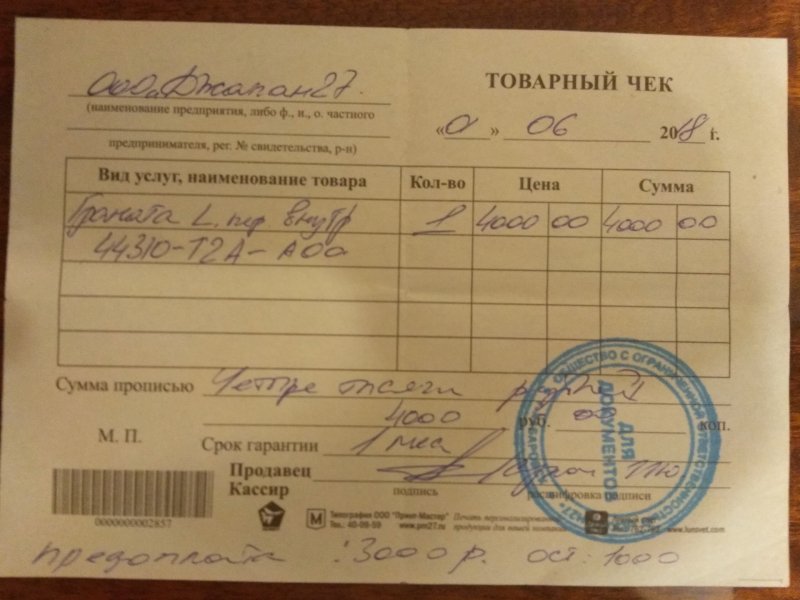 ООО „Джапан27"
ТОВАРНЫЙ ЧЕК
(наименование предприятия, либо ф., и., о. частного
предпринимателя, рег. № свидетельства, р-н)
« » 06 2018 г.
Вид услуг, наименование товара Кол-во Цена Сумма
Граната L. пер внутр 1 4000 00 4000 00
44310-T2A-A00
Сумма прописью Четыре тысячи рублей
4000 руб. 00 коп.
М. П.
Срок гарантии 1 мес
Продавец
Кассир
подпись расшифровка подписи
ОБЩЕСТВО С ОГРАНИЧЕННОЙ ОТВЕТСТВЕННОСТЬЮ
ДЛЯ ДОКУМЕНТОВ
0000000002857
М Типография ООО "Принт-Мастер"
Тел.: 40-09-59 www.pm27.ru
Печать персонализированной
продукции для вашей компании
www.lunsvet.com
предоплата : 3000 р. ост: 1000